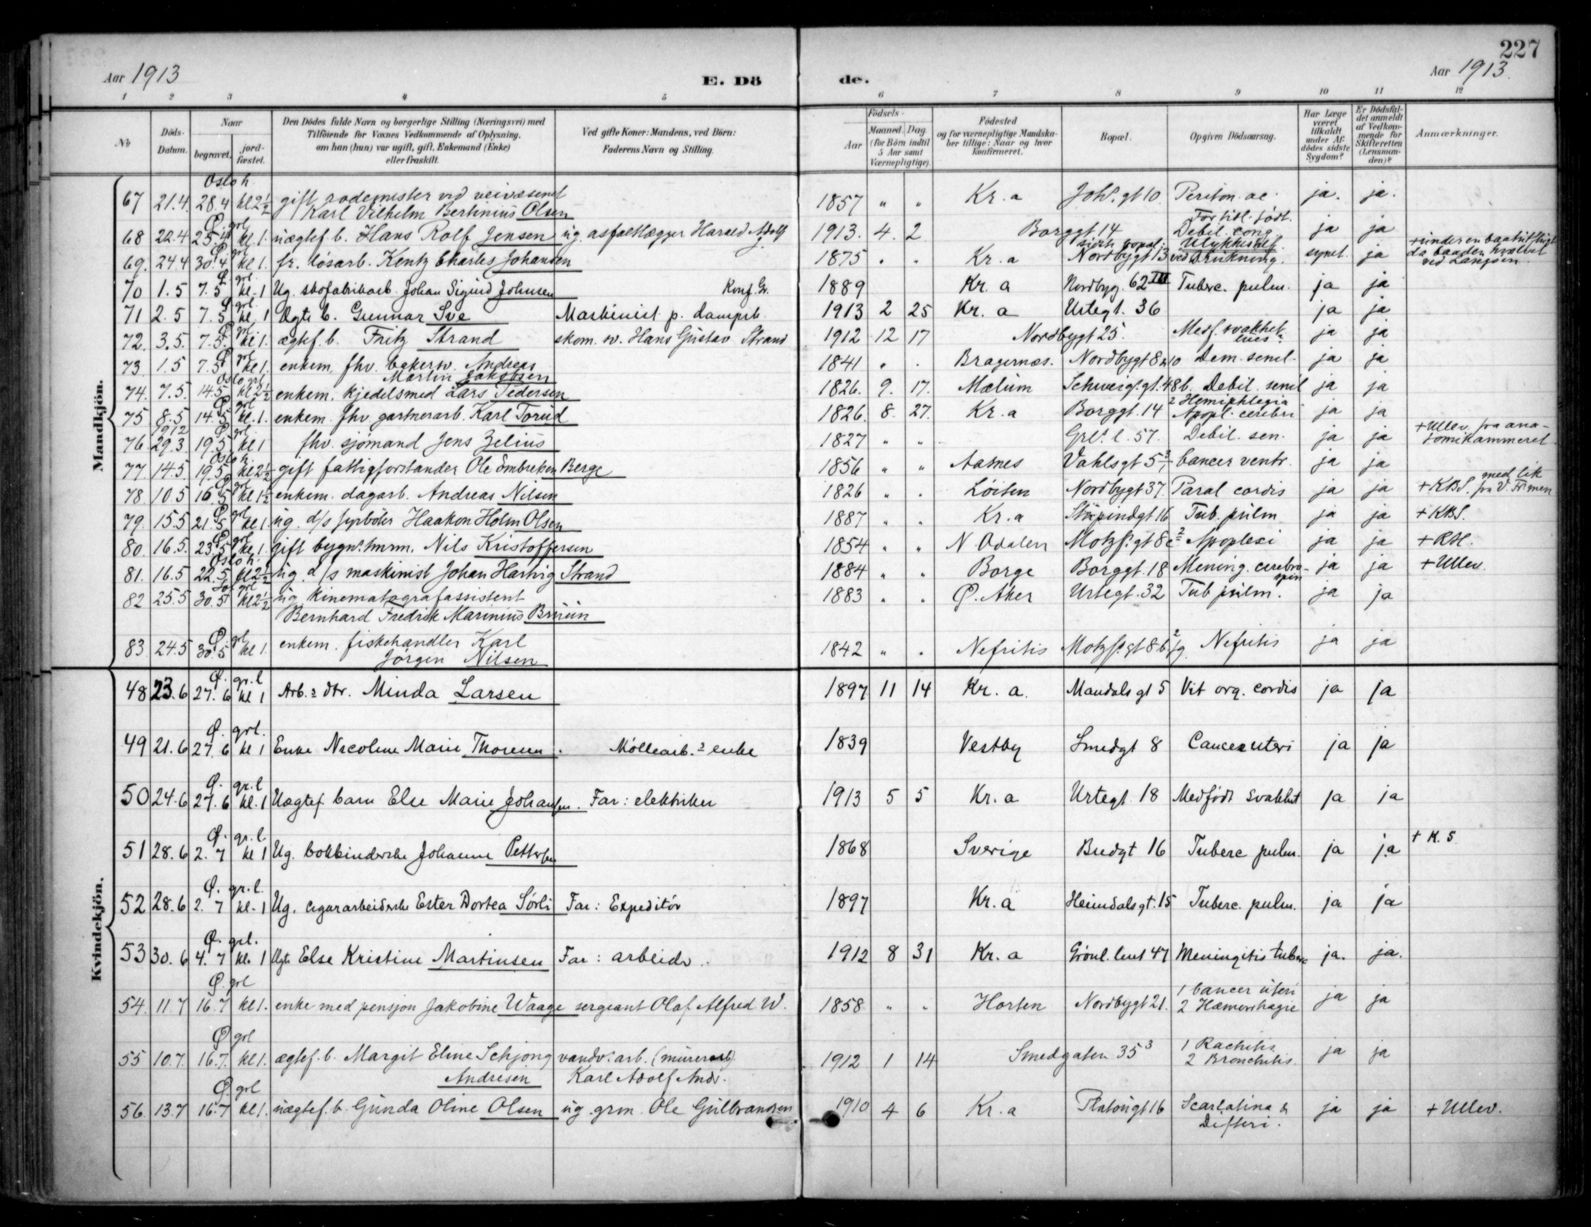 Aar 1913 E. Dö de. Aar 1913. 227
1 2 3 4 5 6 7 8 9 10 11 12
No Döds-Datum. Naar begravet. jord-fæstet.
Den Dödes fulde Navn og borgerlige Stilling (Næringsvei) med
Tilföiende for Voxnes Vedkommende af Oplysning,
om han (hun) var ugift, gift, Enkemand (Enke)
eller fraskilt.
Ved gifte Koner: Mandens, ved Börn:
Faderens Navn og Stilling.
Födsels-
Aar Maaned Dag
(for Börn indtil
5 Aar samt
Værnepligtige).
Födested
og for værnepligtige Mandska-
ber tillige: Naar og hvor
konfirmeret.
Bopæl.
Opgiven Dödsaarsag.
Har Læge
været
tilkaldt
under Af-
dödes sidste
Sygdom?
Er Dödsfal-
det anmeldt
af Vedkom-
mende for
Skifteretten
(Lensman-
den)?
Anmærkninger.
Mandkjön.
Oslo h.
67 21.4 28.4 kl 2½ gift rodemester ved veivæsenet 1857 " " Kr. a Joh.s gt 10 Periton. ac. ja. ja.
Karl Vilhelm Bertinius Olsen
Ø. grl
68 22.4 25.4 kl 1. uægtef. b. Hans Rolf Jensen ug. asfaltlægger Harald Adolf J 1913. 4. 2 Borggt. 14 For tidl. født. Debil. cong. ja ja
69. 24.4 30.4 kl 1. fr. løsarb. Kentz Charles Johansen 1875 " . Kr. a Nordbygt 13 Ulykkestilf. ved drukning. synet. ja + under en baatutflugt
da baaden kvælvet
ved Langøen.
70 1.5 7.5 kl. 1 Ug. skofabrikarb. Johan Sigurd Johnsen Konf. Gr. 1889 Kr. a Nordbyg. 62 III Tuberc. pulm. ja ja
71 2.5 7.5 kl. 1 Ægte b. Gunnar Sve Maskinist p. dampsk. 1913 2 25 Kr. a Urtegt. 36 ja ja
72 3.5. 7.5 kl 1. ægtef. b. Fritz Strand skom. sv. Hans Gustav Strand 1912 12 17 Nordbygt 25. Medf. svakhet lues? ja ja
73. 1.5 7.5 kl 1. enkem. fhv. bakersv. Andreas 1841 " . Bragernæs. Nordbygt 8 Dem. senil. ja ja
Martin Jakobsen
74. 7.5. 14.5 kl 2½ enkem. kjedelsmed Lars Pedersen 1826. 9. 17. Mælum Schweigt. gt. 48b. Debil. senil ja ja
75 8.5 14.5 kl. 1. enkem. fhv. gartnerarb. Karl Torud 1826. 8. 27. Kr. a Borggt. 14 2 Hemiplegia Apopl. cerebri ja ja
1912
76 29.3 19.5 kl 1 fhv. sjömand Jens Zelius 1827 " " Grl.s l. 57. Debil. sen. ja ja + Ullev. fra ana-
tomikammeret.
Oslo h.
77 14.5 19.5 kl 2½ gift fattigforstander Ole Embretsen Berge 1856 " " Aasnes Vahlsgt 5 Cancer ventr. ja ja
78 10.5 16.5 kl 1½ enkem. dagarb. Andreas Nilsen 1826 " " Löiten Nordbygt 37. Paral cordis ja ja + KBS. med lik
79. 15.5 21.5 kl 1. ug. d/s fyrböter Haakon Holm Olsen 1887 " . Kr. a Støpindgt 16 Tub. pulm ja ja + KBS.
80. 16.5. 23.5 kl. 1. gift bygn. tmrm. Nils Kristoffersen 1854 " " N Odalen Motzf. gt 8c Apoplexi ja ja + RH.
Oslo h.
81. 16.5 22.5 kl 2½ ug. d/s maskinist Johan Hartvig Strand 1884 " . Borge Borggt. 18 Mening. cerebro-spin. ja ja + Ullev.
82 25.5 30.5 kl 2½ ug. kinematografassistent 1883 " . Ø. Aker Urtegt. 32 Tub pulm. ja ja
Bernhard Fredrik Marinius Bruun
Ø. grl
83. 24.5 30.5 kl 1 enkem. fiskehandler Karl 1842 " . Nefritis Motzf. gt 8b Nefritis ja ja
Jörgen Nilsen
Kvindekjön.
Ø. gr. l
48 23.6 27.6 kl 1 Arb.s dtr. Minda Larsen 1897 11 14 Kr. a. Mandals gt 5 Vit org. cordis ja ja
Ø. grl.
49 21.6 27.6 kl 1 Enke Nicoline Marie Thoresen. Møllearb.s enke 1839 Vestby Smedgt 8 Cancer uteri ja ja
Ø. gr. l
50 24.6 27.6 kl 1 Uægtef. barn Else Marie Johansen. Far: elektriker 1913 5 5 Kr. a Urtegt. 18 Medfødt svakhet ja ja
Ø. gr. l
51 28.6 2.7 kl 1 Ug. bokbinderske Johanne Pettersen 1868 Sverige Budgt 16 Tuberc pulm. ja ja + K. S.
Ø. gr. l.
52 28.6 2.7 kl. 1 Ug. cigararbeiderske Ester Dortea Sörli Far: Expeditör 1897 Kr. a Heimdals gt. 15 Tuberc. pulm. ja ja
Ø. grl.
53 30.6 4.7 kl. 1 Ægte Else Kristine Martinsen Far: arbeider. 1912 8 31 Kr. a Grönl. leret 47 Meningitis tuberc ja. ja.
Ø grl
54. 11.7 16.7 kl 1. enke med pensjon Jakobine Waage sergeant Olaf Alfred W. 1858 " " Horten Nordbygt 21. 1 Cancer uteri ja ja
2 Hæmorrhagie
Ø grl
55 10.7. 16.7. kl 1. ægtef. b. Margit Eline Schjong vandv. arb. (murerarb) 1912 1 14 Smedgaten 35³ 1 Rachitis ja ja
Andresen Karl Adolf Andr. 2 Bronchitis.
Ø grl
56 13.7 16.7 kl 1. uægtef. b. Gunda Oline Olsen ug. grm. Ole Gulbrandsen 1910 4 6 Kr. a Platougt 16 Scarlatina & ja ja + Ullev.
Difteri.